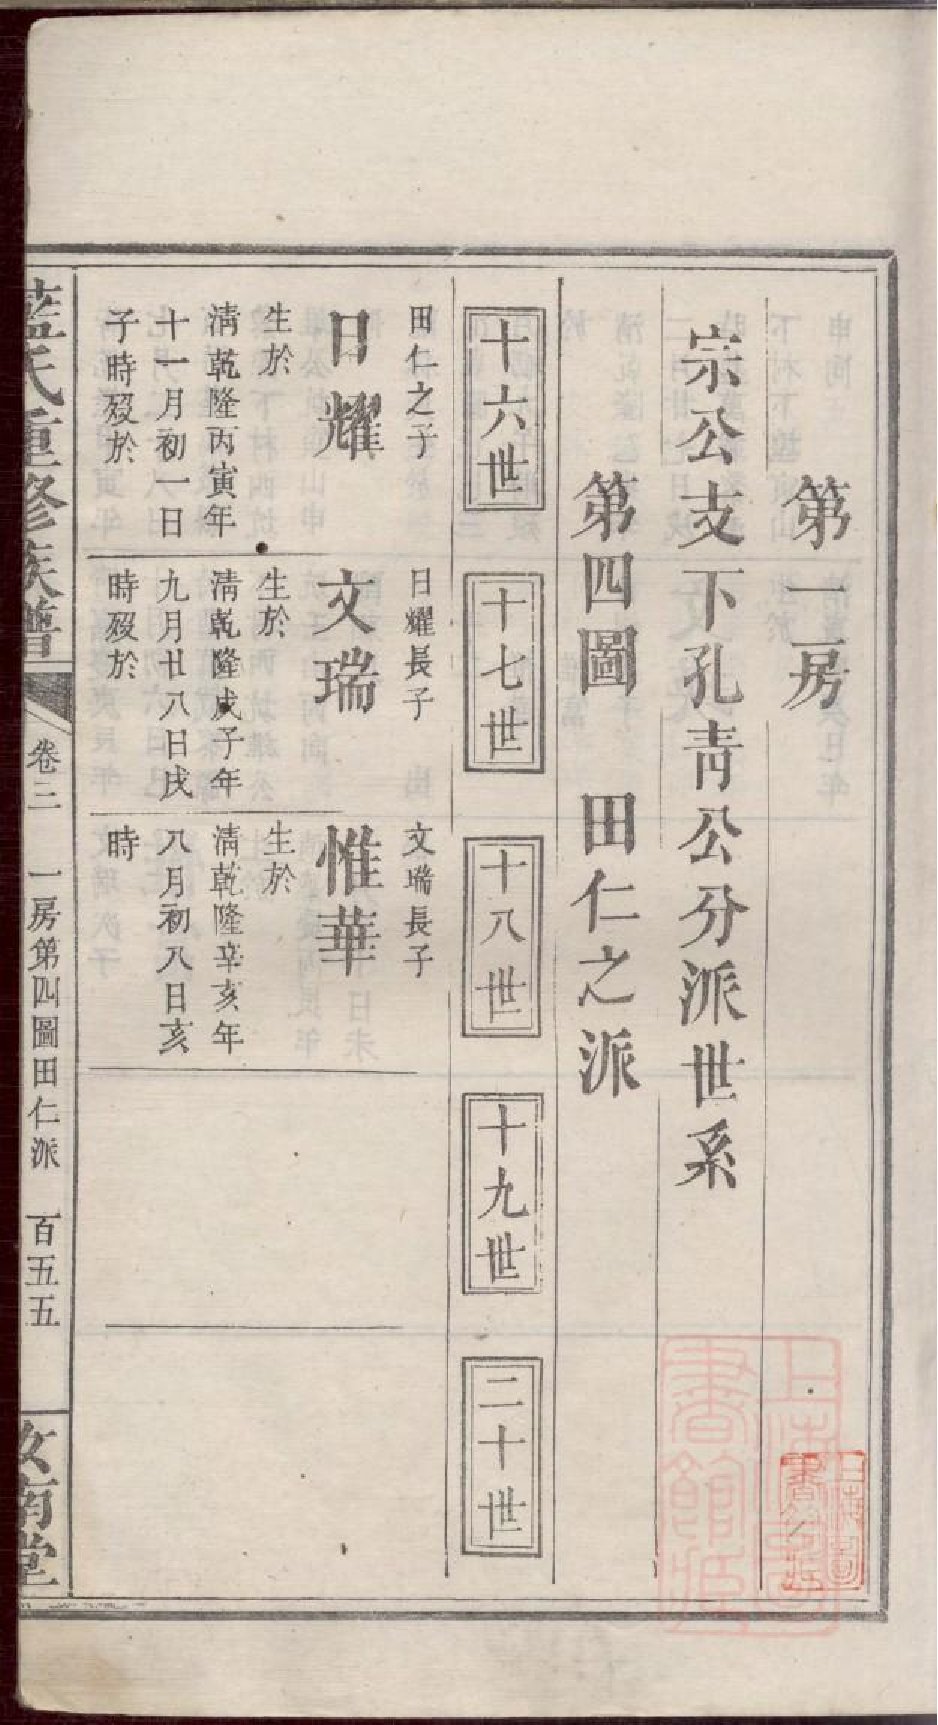 第一房
宗公支下孔青公分派世系
第四圖　田仁之派
十六世
十七世
十八世
十九世
二十世
田仁之子
日耀
生於
清乾隆丙寅年
十一月初一日
子時殁於
日耀長子
文瑞
生於
清乾隆戊子年
九月廿八日戌
時殁於
文瑞長子
惟華
生於
清乾隆辛亥年
八月初八日亥
時
藍氏重修族譜
卷三　一房第四圖田仁派　百五五
汝南堂
上海圖書館藏